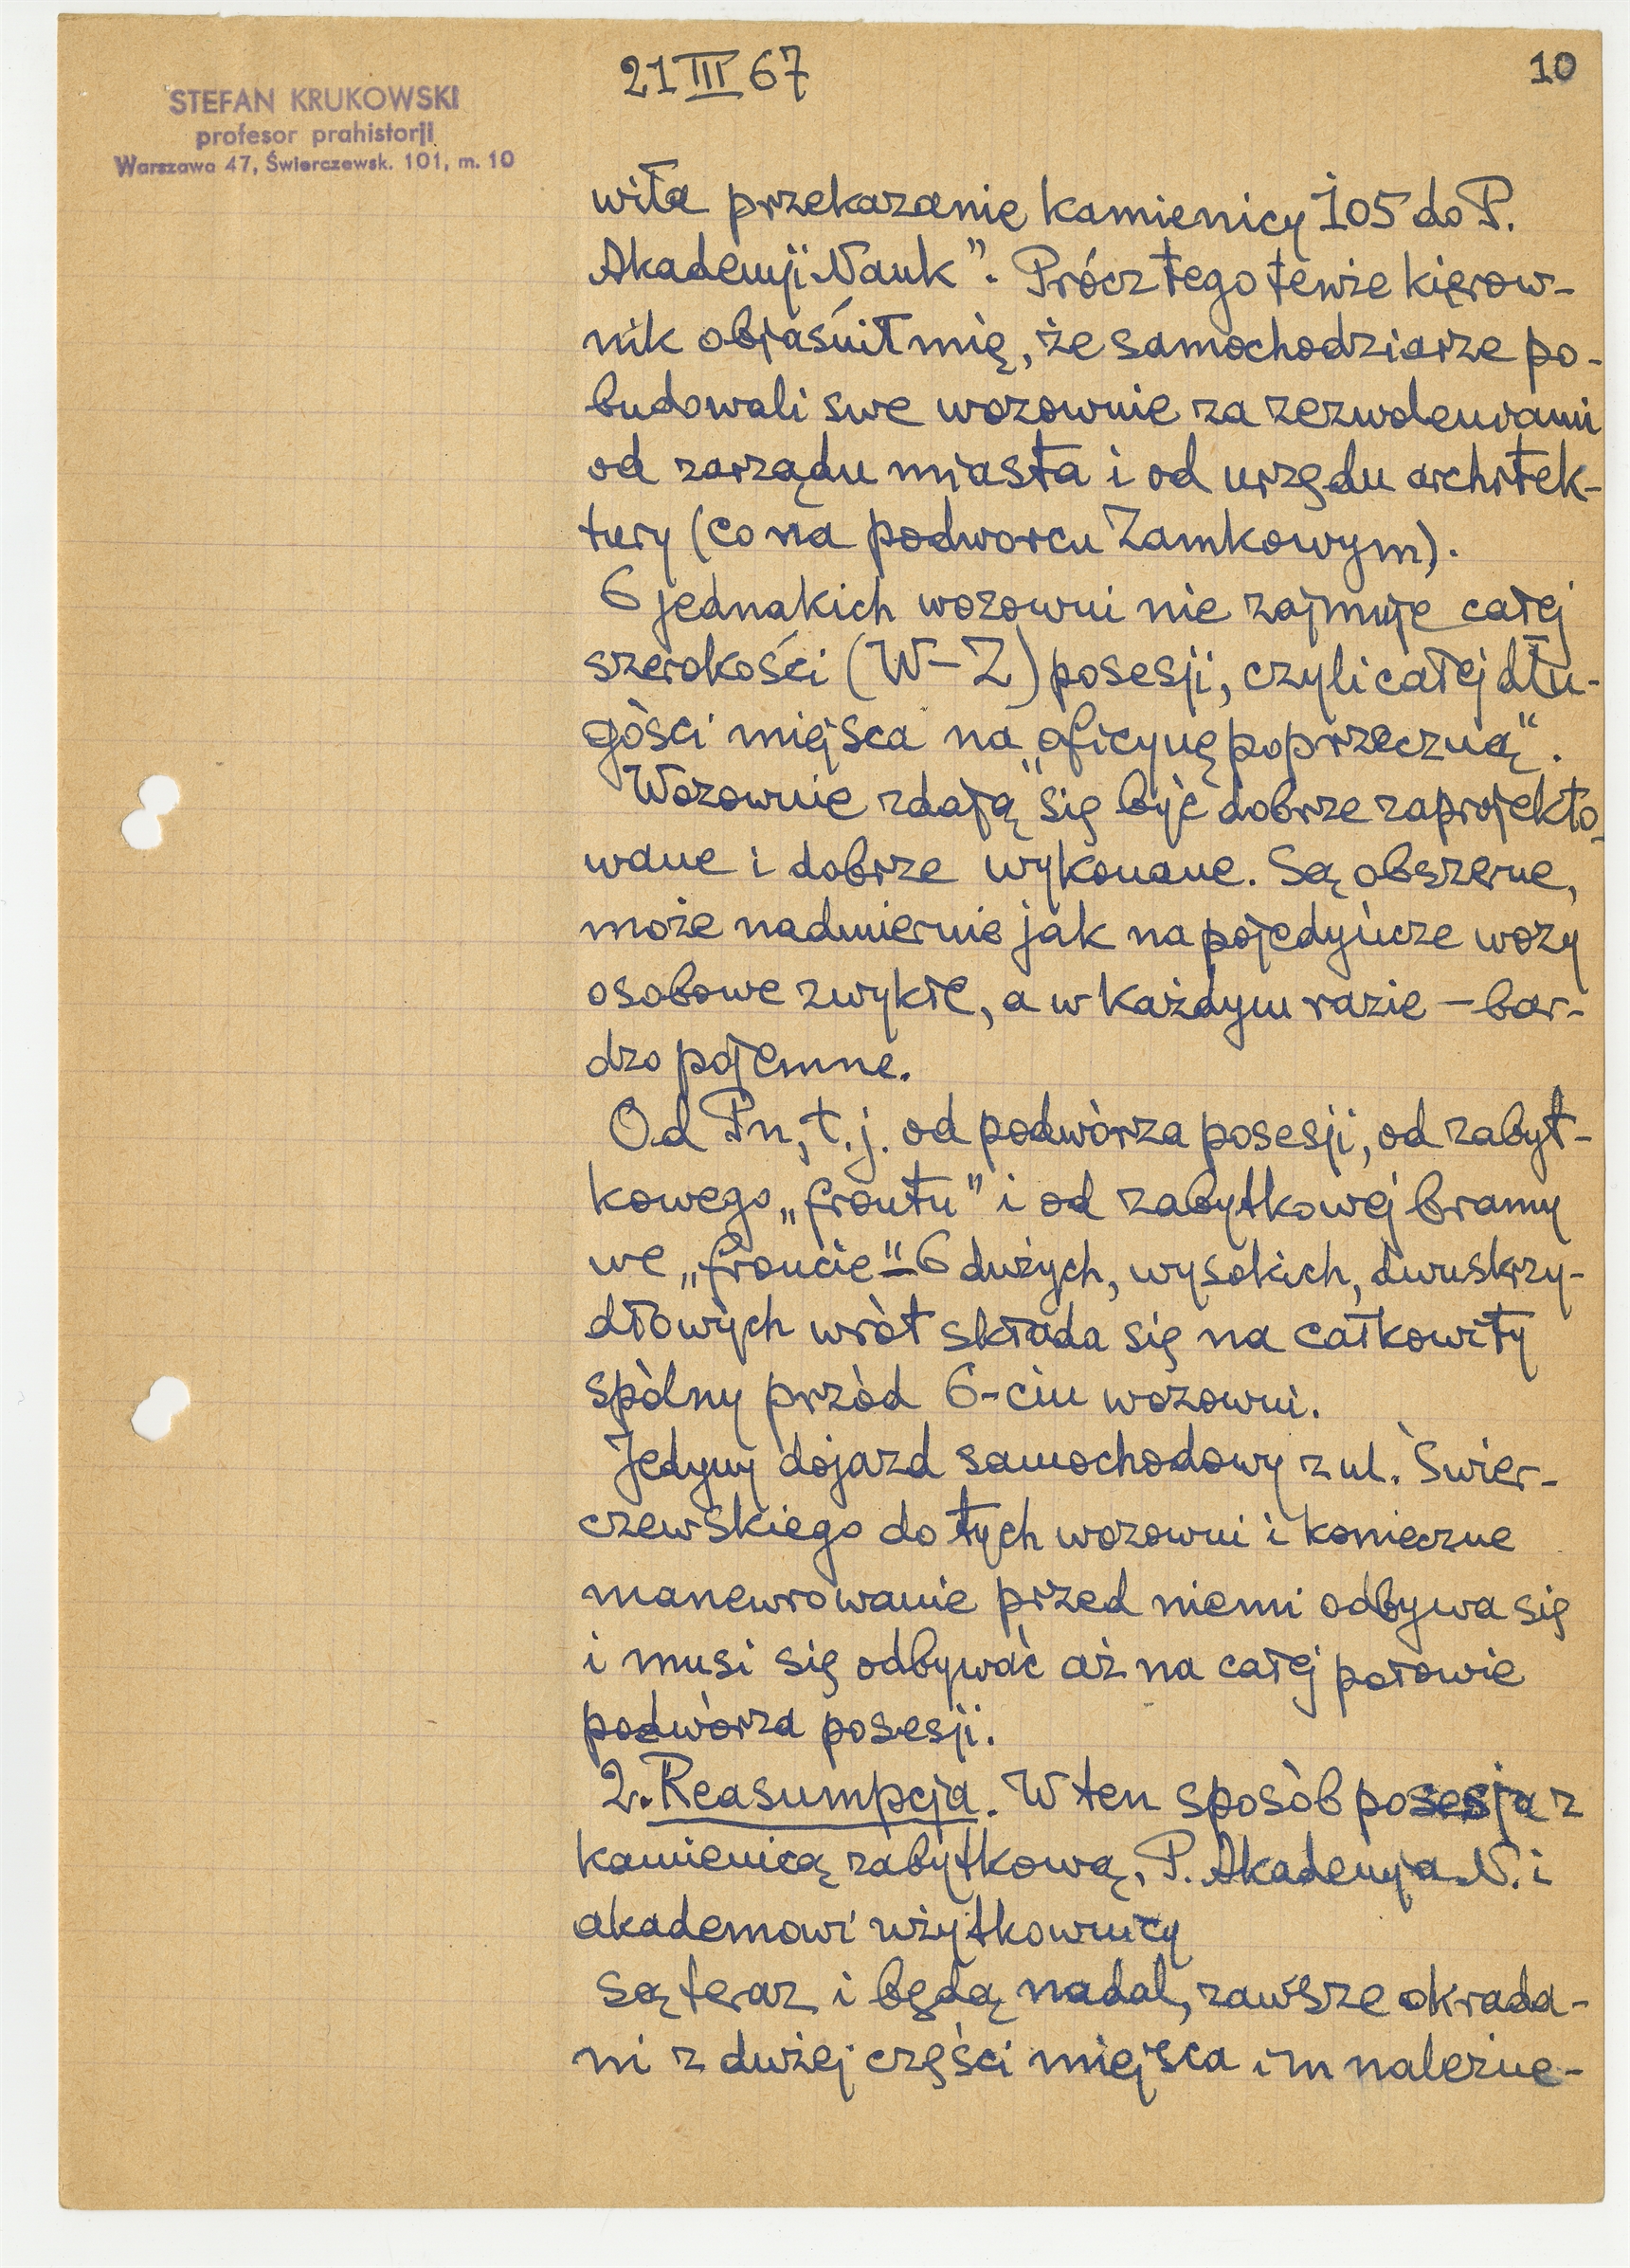 21 III 67
10
STEFAN KRUKOWSKI
profesor prahistorji
Warszawa 47, Świerczewsk. 101, m. 10
wiła przekazanie kamienicy 105 do P.
Akademji Nauk”. Prócz tego tenże kierow-
nik objaśnił mię, że samochodziarze po-
budowali swe wozownie za zezwoleniami
od zarządu miasta i od urzędu architek-
tury (co na podworcu Zamkowym).
6 jednakich wozowni nie zajmuje całej
szerokości (W-Z) posesji, czyli całej dłu-
gości miejsca na „oficynę poprzeczną“.
Wozownie zdają się być dobrze zaprojekto-
wane i dobrze wykonane. Są obszerne,
może nadmiernie jak na pojedyńcze wozy
osobowe zwykłe, a w każdym razie – bar-
dzo pojemne.
Od Pn, t.j. od podwórza posesji, od zabyt-
kowego „frontu” i od zabytkowej bramy
we „froncie“ – 6 dużych, wysokich, dwuskrzy-
dłowych wrót składa się na całkowity
spólny przód 6-ciu wozowni.
Jedyny dojazd samochodowy z ul. Świer-
czewskiego do tych wozowni i konieczne
manewrowanie przed niemi odbywa się
i musi się odbywać aż na całej połowie
podwórza posesji.
2. Reasumpcja. W ten sposób posesja z
kamienicą zabytkową, P. Akademja N. i
akademowi użytkownicy
są teraz i będą nadal, zawsze okrada-
ni z dużej części miejsca im należne-